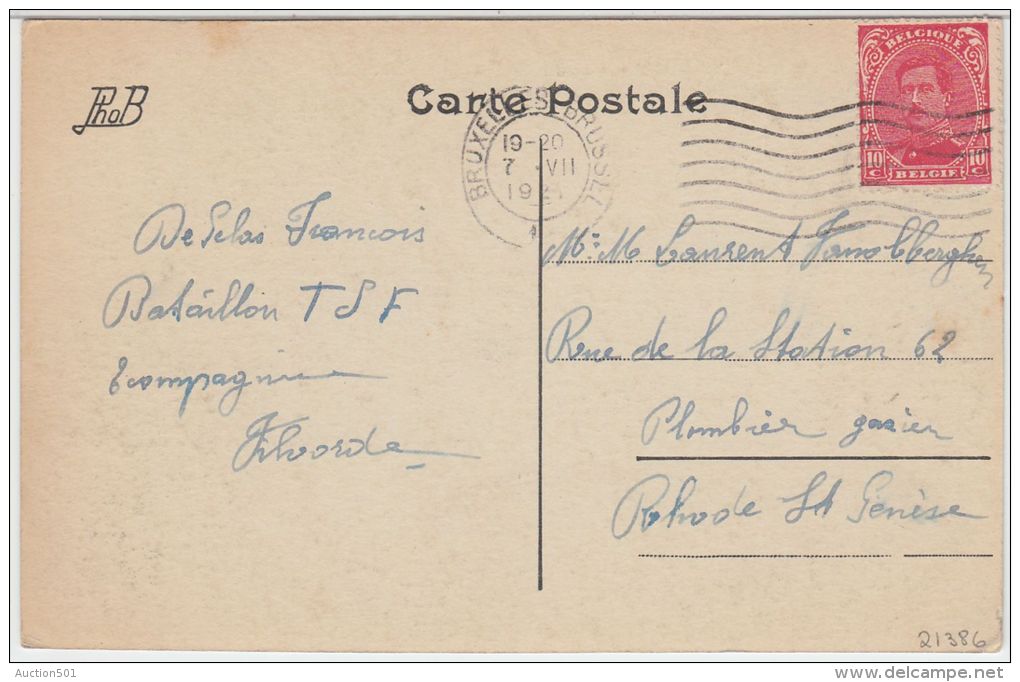 PhoB
Carte Postale
BELGIQUE
10 C 10 C
BELGIË
BRUXELLES BRUSSEL
19-20
7 VII
François
Bataillon T S F
compagnie
Vilvorde
Mr M Laurent
Rue de la Station 62
Plombier gazier
Rhode St Genèse
21386
Auction501
www.delcampe.net